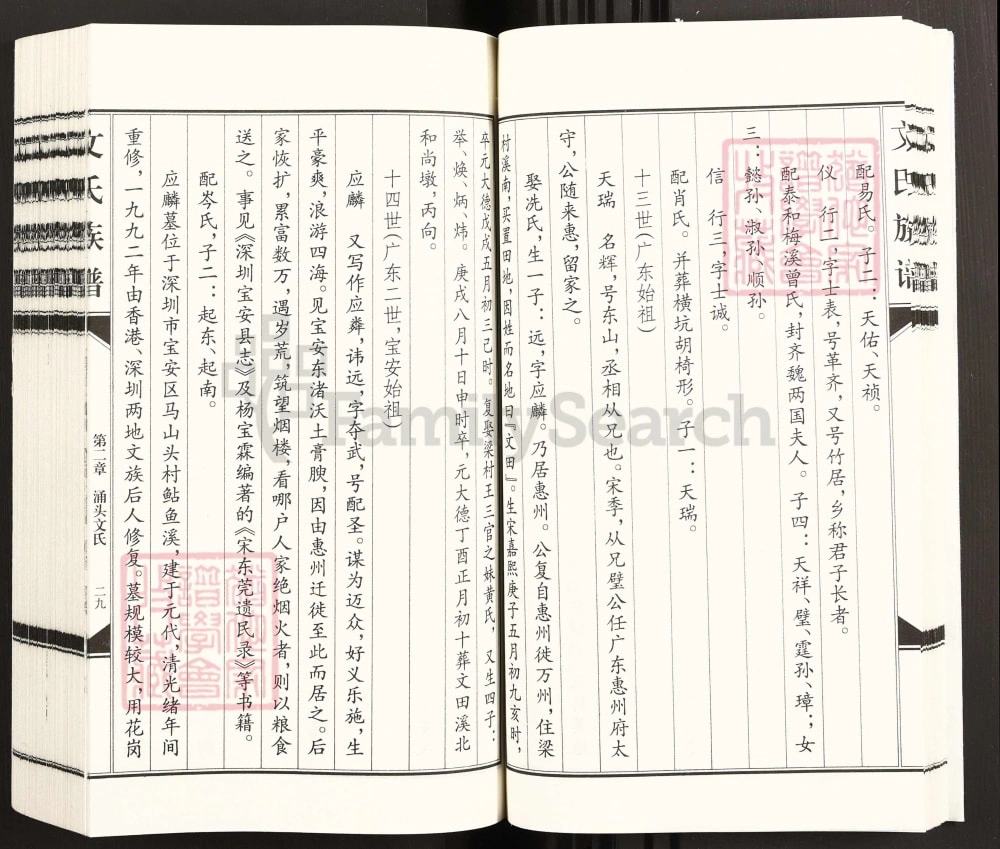 文氏族谱
配易氏。子二：天佑、天祯。
仪　行二，字士表，号革齐，又号竹居，乡称君子长者。
配泰和梅溪曾氏，封齐魏两国夫人。子四：天祥、璧、霆孙、璋；女
三：懿孙、淑孙、顺孙。
信　行三，字士诚。
配肖氏。并葬横坑胡椅形。子一：天瑞。
十三世(广东始祖)
天瑞　名辉，号东山，丞相从兄也。宋季，从兄璧公任广东惠州府太
守，公随来惠，留家之。
娶冼氏，生一子：远，字应麟。乃居惠州。公复自惠州徙万州，住梁
村溪南，买置田地，因姓而名地曰『文田』。生宋嘉熙庚子五月初九亥时，
卒元大德戊戌五月初三己时。复娶梁村王三官之妹黄氏，又生四子：
举、焕、炳、炜。庚戌八月十日申时卒，元大德丁酉正月初十葬文田溪北
和尚墩，丙向。
十四世(广东二世，宝安始祖)
应麟　又写作应粦，讳远，字夺武，号配圣。谋为迈众，好义乐施，生
平豪爽，浪游四海。见宝安东渚沃土膏腴，因由惠州迁徙至此而居之。后
家恢扩，累富数万，遇岁荒，筑望烟楼，看哪户人家绝烟火者，则以粮食
送之。事见《深圳宝安县志》及杨宝霖编著的《宋东莞遗民录》等书籍。
配岑氏，子二：起东、起南。
应麟墓位于深圳市宝安区马山头村鲇鱼溪，建于元代，清光绪年间
重修，一九九二年由香港、深圳两地文族后人修复。墓规模较大，用花岗
文氏族谱
第二章　涌头文氏
二九
FamilySearch